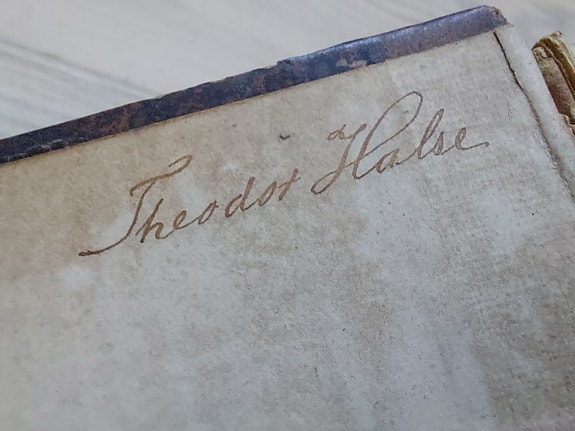 Theodor Halse